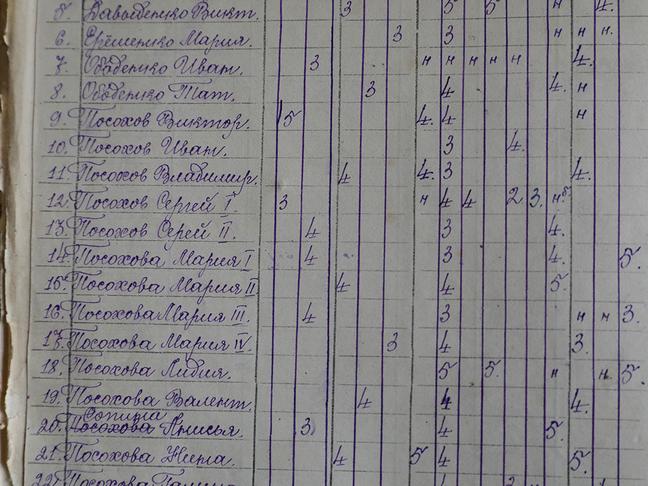 5. Давыденко Викт. 3 5 5 н 4.
6. Ерёменко Мария. 3 3 н н н.
7. Обабенко Иван. 3 н н н н н 4.
8. Обабенко Тат. 3 4 4. н
9. Посохов Виктор. 5 4. 4 н
10. Посохов Иван. 3 4.
11. Посохов Владимир. 4 4. 3 4.
12. Посохов Сергей I 3 н 4 4 2 3. н
13. Посохов Серей II. 4 3 4.
14. Посохова Мария I 4 3 4. 5.
15. Посохова Мария II 4 4 5.
16. Посохова Мария III. 4 3 н н 3.
17. Посохова Мария IV. 3 4 3.
18. Посохова Лидия. 5 5. н н 5.
19. Посохова Валент. 4 4 4.
20. Посохова Анисья. 3 4 5.
21. Посохова Нина. 4 5 4 5.
22. Посохова